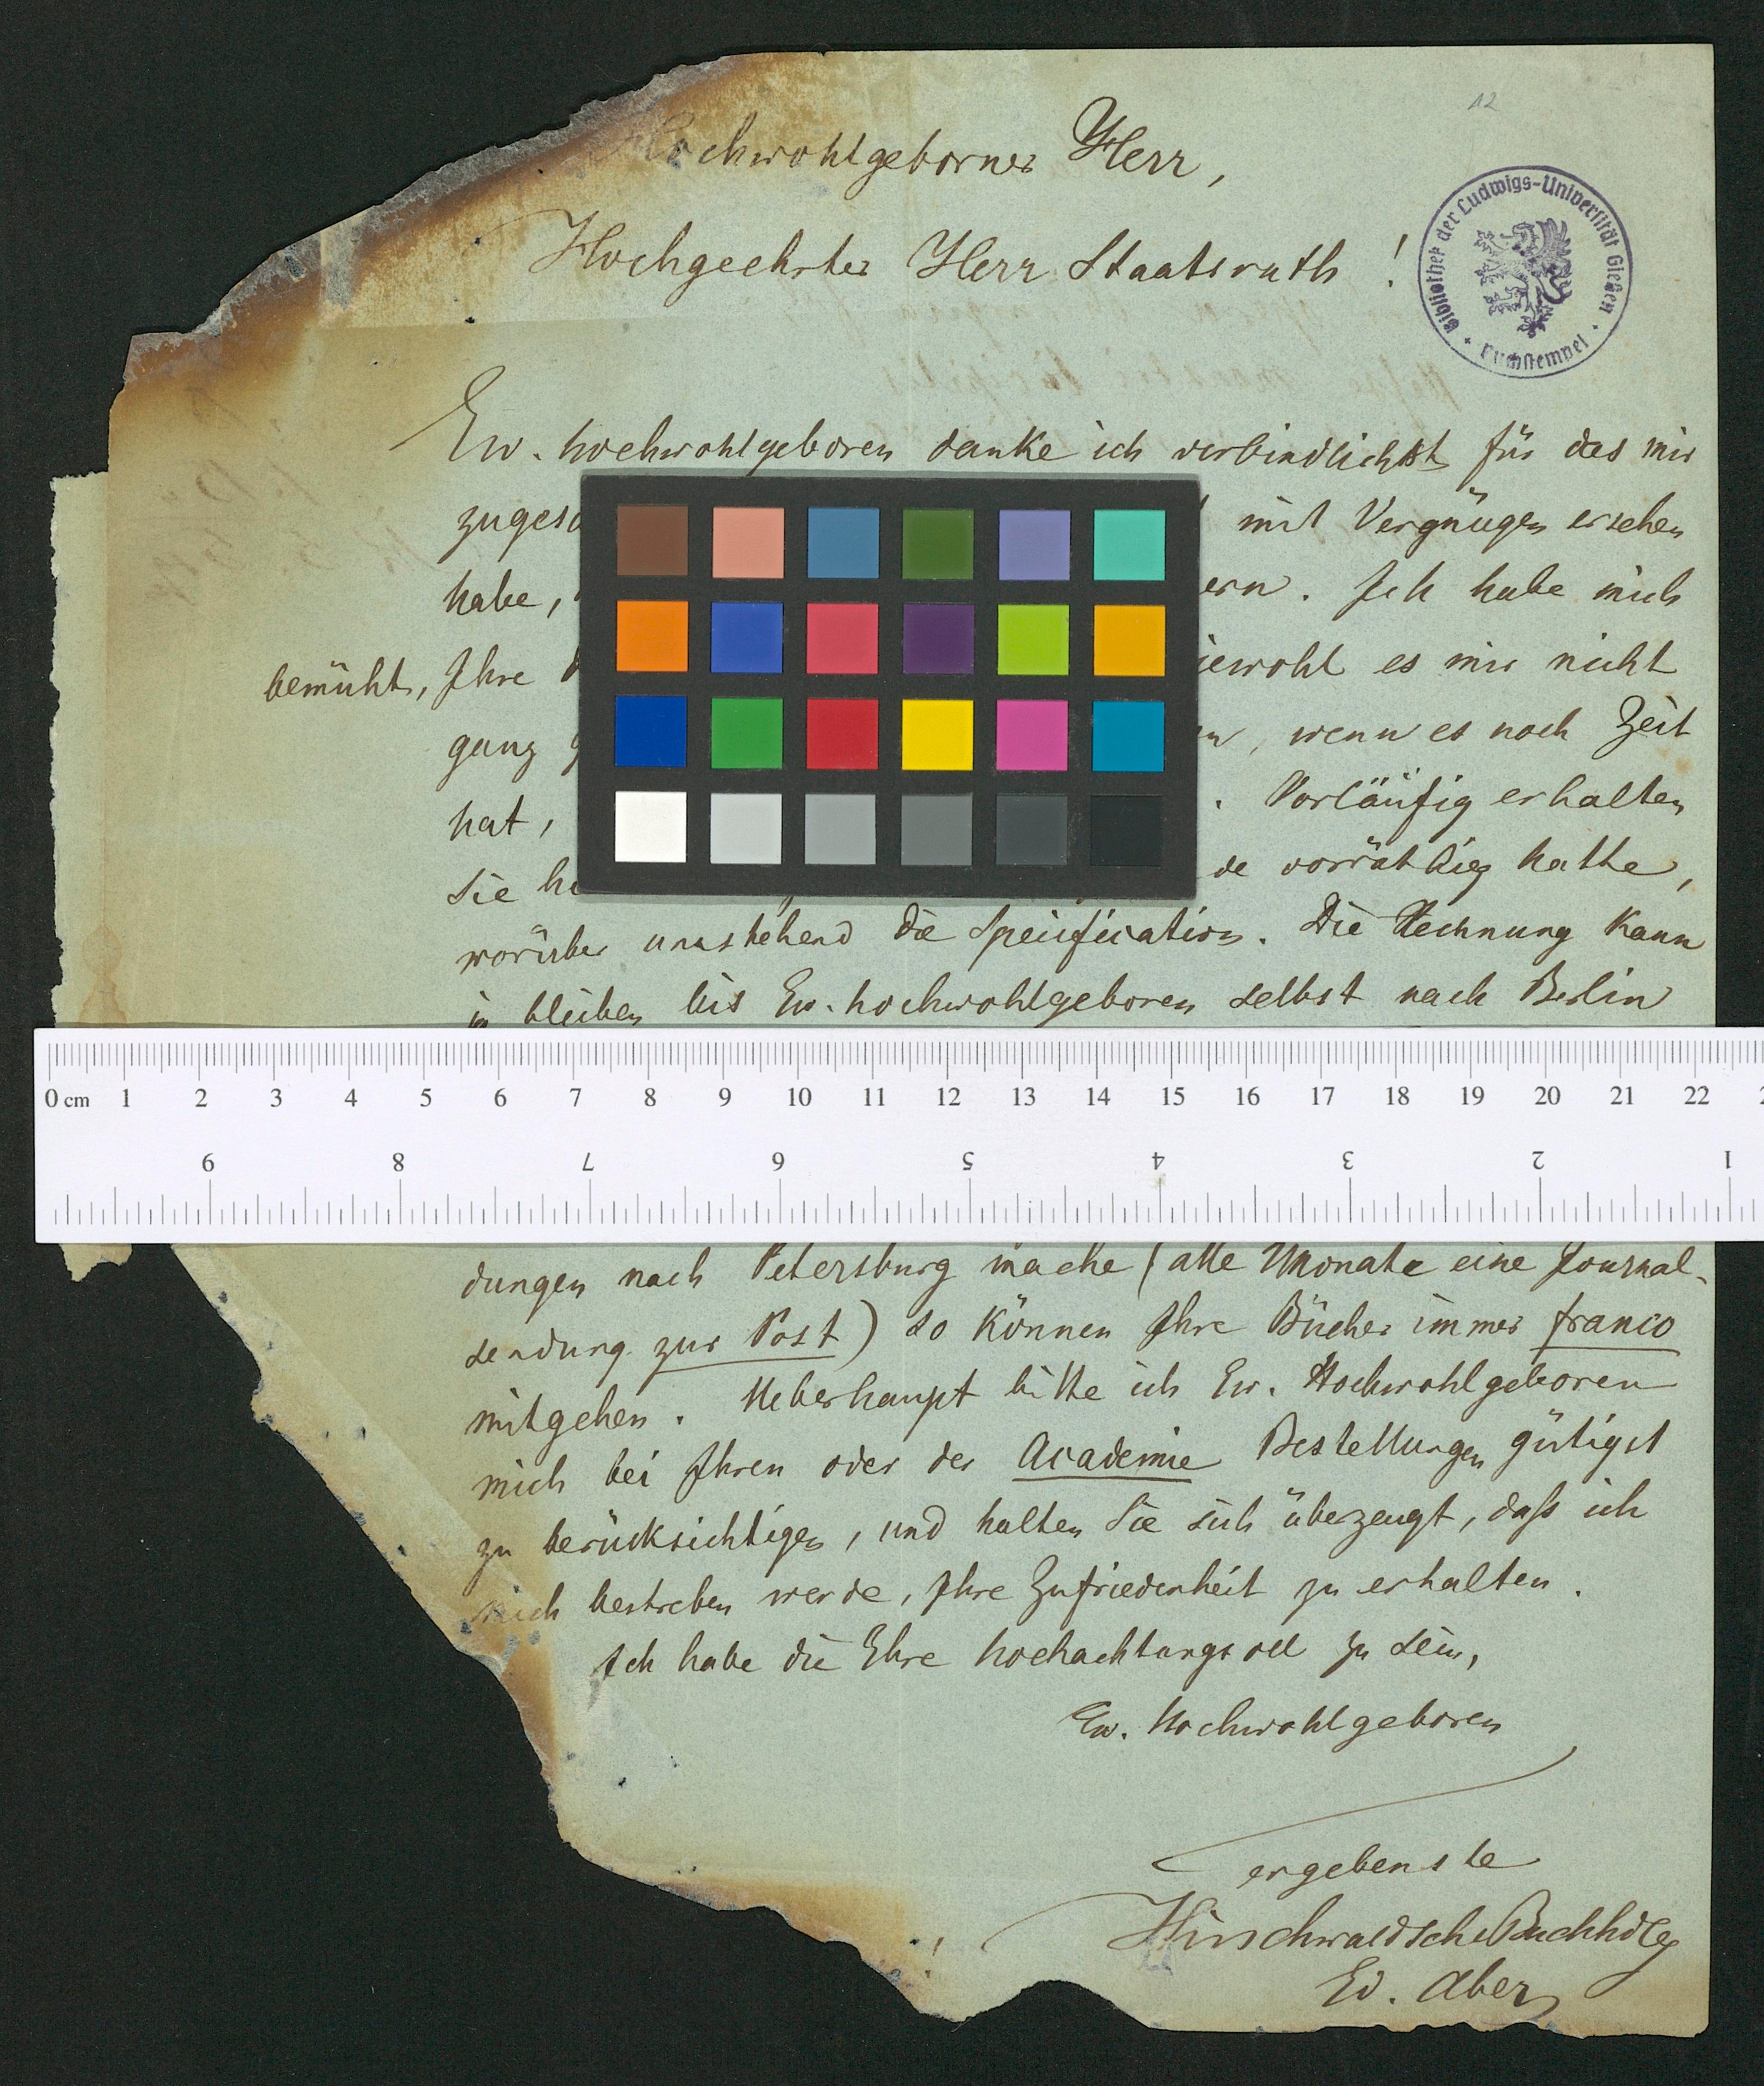 12
Hochwohlgeborner Herr,
Hochgeehrter Herr Staatsrath!
Bibliothek der Ludwigs-Universität Gießen
Buchstempel
Ew. hochwohlgeboren danke ich verbindlichst für das mir
mit Vergnügen ersehen
habe, ern. Ich habe mich
bemüht, Ihre iewohl es mir nicht
ganz wenn es noch Zeit
hat, . Vorläüfig erhalten
Sie vorräthig hatte,
worüber umstehend die Specification. Die Rechnung kann
ja bleiben bis Ew. hochwohlgeboren selbst nach Berlin
0 cm 1 2 3 4 5 6 7 8 9 10 11 12 13 14 15 16 17 18 19 20 21 22
9 8 7 6 5 4 3 2 1
dungen nach Petersburg mache (alle Monate eine Journal-
sendung zur Post) so können Ihre Bücher immer franco
mitgehen. Ueberhaupt bitte ich Ew. Hochwohlgeboren
mich bei Ihren oder der Academie Bestellungen gütigst
zu berücksichtigen, und halten Sie sich überzeugt, daß ich
mich bestreben werde, Ihre Zufriedenheit zu erhalten.
Ich habe die Ehre hochachtungsvoll zu sein,
Ew. Hochwohlgeboren
ergebenste
Hirschwaldsche Buchhdlg
Ed. Aber